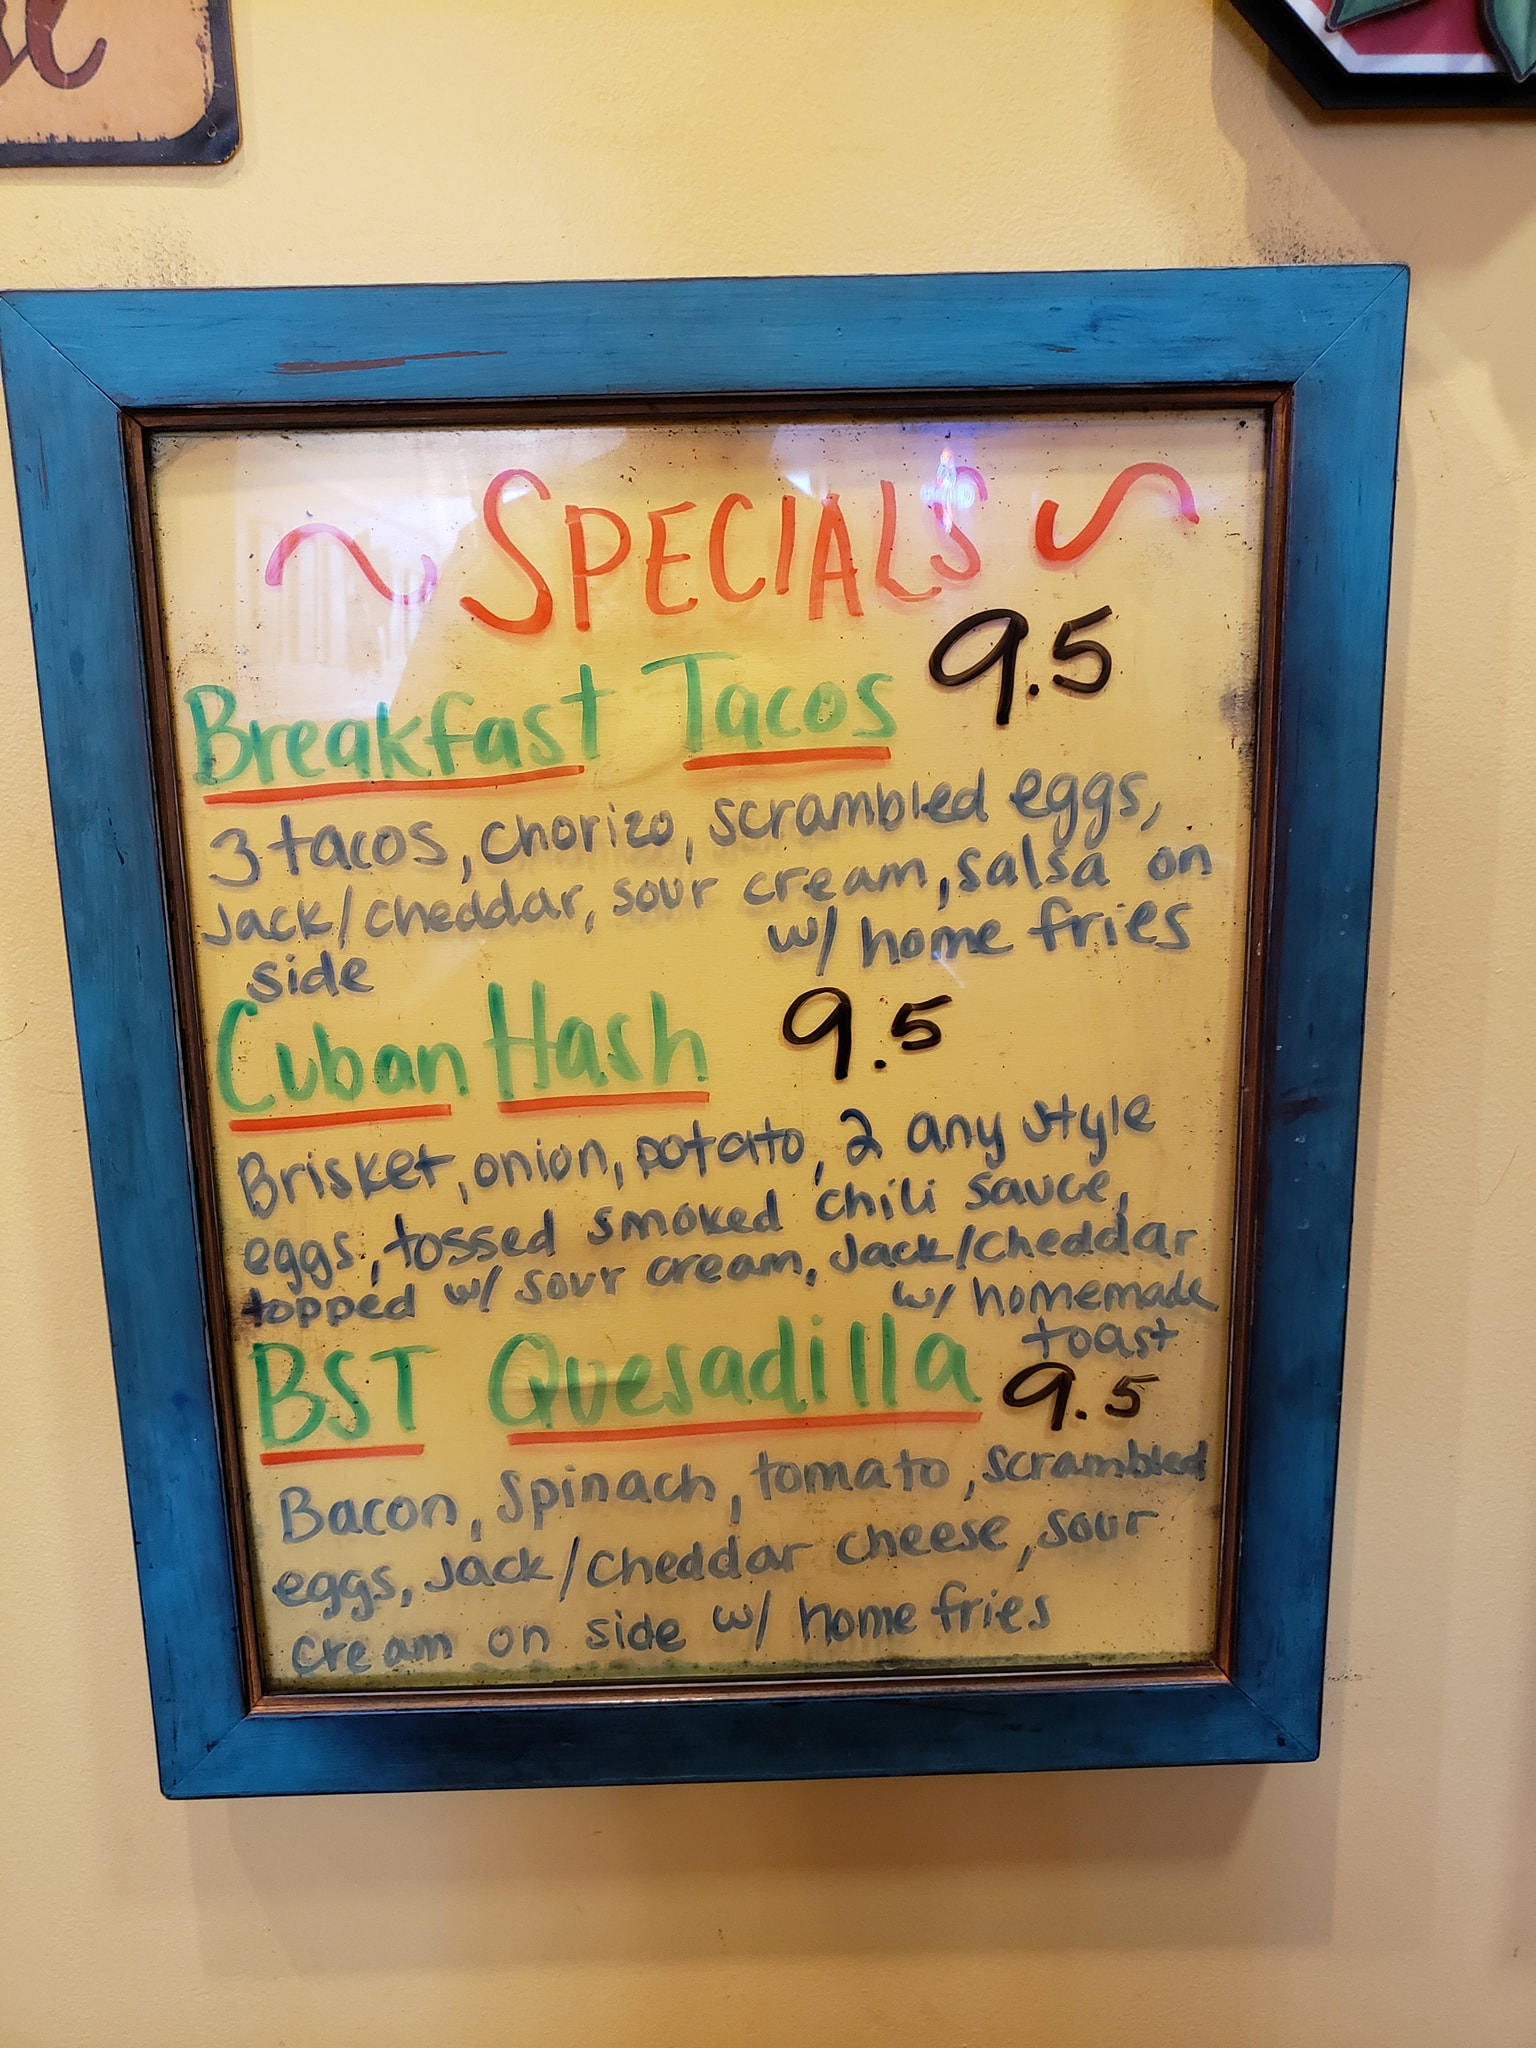 ~ SPECIALS ~
Breakfast Tacos 9.5
3 tacos, chorizo, scrambled eggs,
Jack/cheddar, sour cream, salsa on
side w/ home fries
Cuban Hash 9.5
Brisket, onion, potato, 2 any style
eggs, tossed smoked chili sauce,
topped w/ sour cream, Jack/cheddar
w/ homemade
toast
BST Quesadilla 9.5
Bacon, spinach, tomato, scrambled
eggs, Jack/cheddar cheese, sour
cream on side w/ home fries